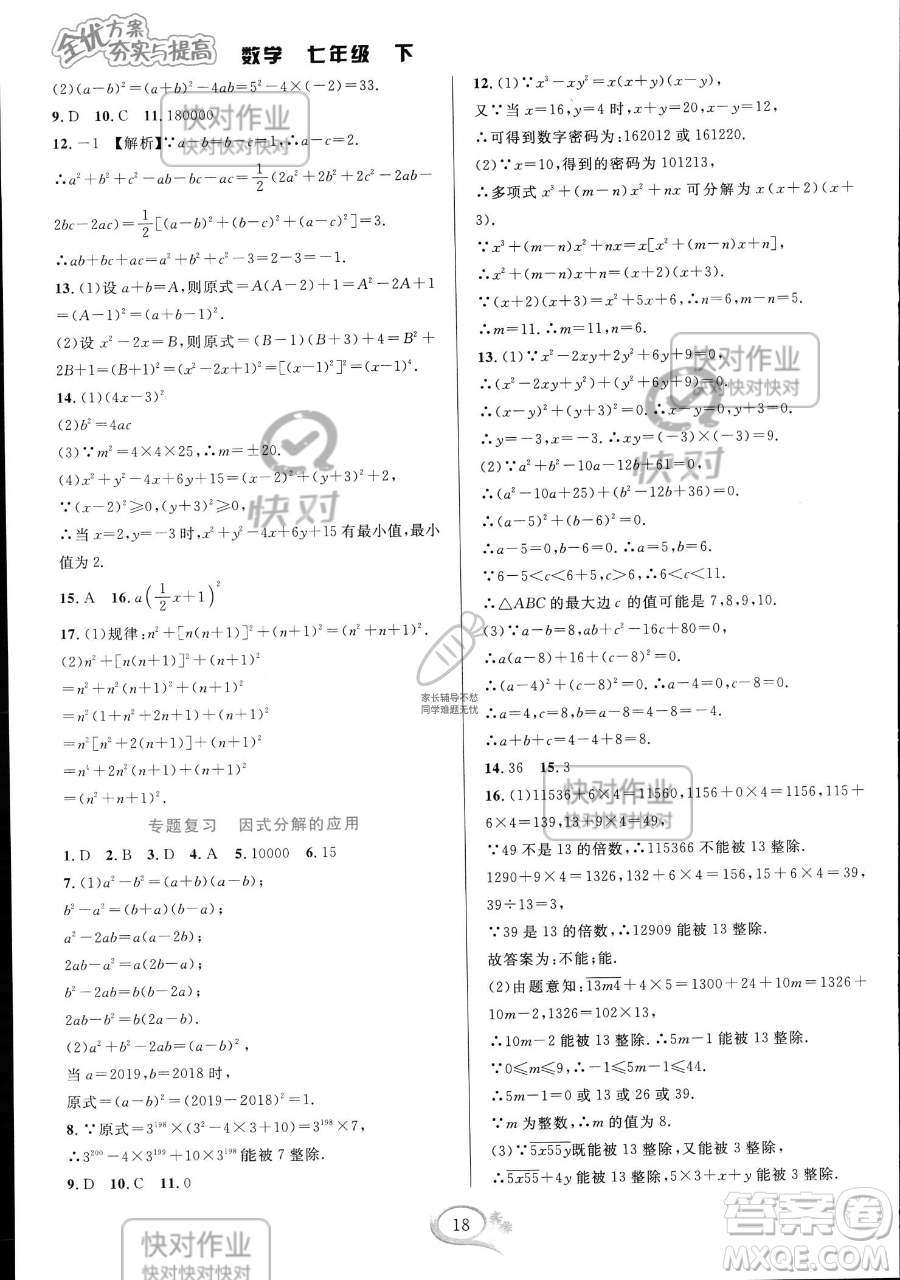 全优方案
夯实与提高
数学 七年级 下
(2)(a－b)²＝(a＋b)²－4ab＝5²－4×(－2)＝33.
9. D 10. C 11. 180000
12. －1 【解析】∵a－b＝b－c＝1,∴a－c＝2.
∴a²＋b²＋c²－ab－bc－ac＝1/2(2a²＋2b²＋2c²－2ab－
2bc－2ac)＝1/2[(a－b)²＋(b－c)²＋(a－c)²]＝3.
∴ab＋bc＋ac＝a²＋b²＋c²－3＝2－3＝－1.
13. (1)设 a＋b＝A,则原式＝A(A－2)＋1＝A²－2A＋1＝
(A－1)²＝(a＋b－1)².
(2)设 x²－2x＝B,则原式＝(B－1)(B＋3)＋4＝B²＋
2B＋1＝(B＋1)²＝(x²－2x＋1)²＝(x－1)⁴.
14. (1)(4x－3)²
(2)b²＝4ac
(3)∵m²＝4×4×25,∴m＝±20.
(4)x²＋y²－4x＋6y＋15＝(x－2)²＋(y＋3)²＋2,
∵(x－2)²≥0,(y＋3)²≥0,
∴当 x＝2,y＝－3 时,x²＋y²－4x＋6y＋15 有最小值,最小
值为 2.
15. A 16. a(1/2x＋1)²
17. (1)规律:n²＋[n(n＋1)]²＋(n＋1)²＝[n(n＋1)＋1]².
(2)n²＋[n(n＋1)]²＋(n＋1)²
＝n²＋n²(n＋1)²＋(n＋1)²
＝n²(1＋n²＋2n＋1)＋(n＋1)²
＝n²[n²＋2(n＋1)]＋(n＋1)²
＝(n²)²＋2n²(n＋1)＋(n＋1)²
＝(n²＋n＋1)².
专题复习 因式分解的应用
1. D 2. B 3. D 4. A 5. 10000 6. 15
7. (1)a²－b²＝(a＋b)(a－b);
b²－a²＝(b＋a)(b－a);
a²－2ab＝a(a－2b);
2ab－a²＝a(2b－a);
b²－2ab＝b(b－2a);
2ab－b²＝b(2a－b).
(2)a²＋b²－2ab＝(a－b)²,
当 a＝2019,b＝2018 时,
原式＝(a－b)²＝(2019－2018)²＝1.
8. ∵原式＝3¹⁹⁸×(3²－4×3＋10)＝3¹⁹⁸×7,
∴3²⁰⁰－4×3¹⁹⁹＋10×3¹⁹⁸能被 7 整除.
9. D 10. C 11. 0
12. (1)∵x³－xy²＝x(x－y)(x＋y),
又∵当 x＝16,y＝4 时,x＋y＝20,x－y＝12,
∴可得到数字密码为:162012 或 161220.
(2)∵x＝10,得到的密码为 101213,
∴多项式 x³＋(m－n)x²＋nx 可分解为 x(x＋2)(x＋
3).
∵x³＋(m－n)x²＋nx＝x[x²＋(m－n)x＋n],
∴x²＋(m－n)x＋n＝(x＋2)(x＋3).
∵(x＋2)(x＋3)＝x²＋5x＋6,∴n＝6,m－n＝5.
∴m＝11,∴m＝11,n＝6.
13. (1)∵x²－2xy＋2y²＋6y＋9＝0,
∴(x²－2xy＋y²)＋(y²＋6y＋9)＝0.
∴(x－y)²＋(y＋3)²＝0.∴x－y＝0,y＋3＝0.
∴y＝－3,x＝－3.∴xy＝(－3)×(－3)＝9.
(2)∵a²＋b²－10a－12b＋61＝0,
∴(a²－10a＋25)＋(b²－12b＋36)＝0.
∴(a－5)²＋(b－6)²＝0.
∴a－5＝0,b－6＝0.∴a＝5,b＝6.
∵6－5＜c＜6＋5,c≥6,∴6≤c＜11.
∴△ABC 的最大边 c 的值可能是 7,8,9,10.
(3)∵a－b＝8,ab＋c²－16c＋80＝0,
∴a(a－8)＋16＋(c－8)²＝0.
∴(a－4)²＋(c－8)²＝0.∴a－4＝0,c－8＝0.
∴a＝4,c＝8,b＝a－8＝4－8＝－4.
∴a＋b＋c＝4－4＋8＝8.
14. 36 15. 3
16. (1)11536＋6×4＝11560,1156＋0×4＝1156,115＋
6×4＝139,13＋9×4＝49.
∵49 不是 13 的倍数,∴115366 不能被 13 整除.
1290＋9×4＝1326,132＋6×4＝156,15＋6×4＝39,
39÷13＝3,
∵39 是 13 的倍数,∴12909 能被 13 整除.
故答案为:不能;能.
(2)由题意知:13m4＋4×5＝1300＋24＋10m＝1326＋
10m－2,1326＝102×13,
∴10m－2 能被 13 整除.∴5m－1 能被 13 整除.
∵0≤m≤9,∴－1≤5m－1≤44.
∴5m－1＝0 或 13 或 26 或 39.
∵m 为整数,∴m 的值为 8.
(3)∵5x55y既能被 13 整除,又能被 3 整除,
∴5x55＋4y 能被 13 整除,5×3＋x＋y 能被 3 整除.
18
快对作业
快对快对快对
快对作业
快对快对快对
快对
快对
家长辅导不愁
同学难题无忧
快对作业
快对快对快对
快对作业
快对快对快对
快对作业
快对快对快对
答案圈
MXQE.COM